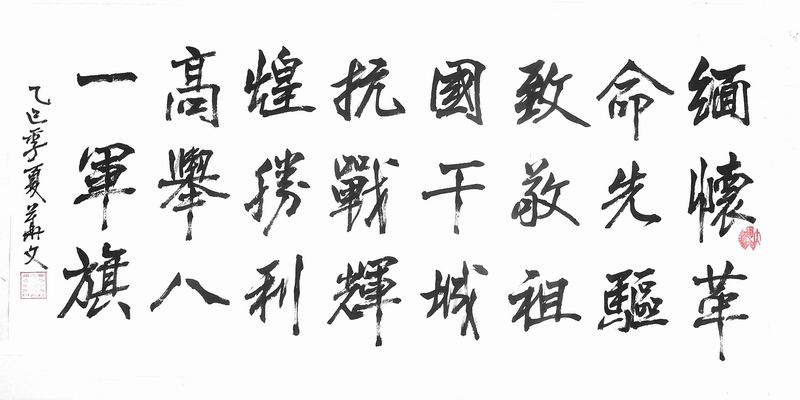 緬懷革
命先驅
致敬祖
國干城
抗戰輝
煌勝利
高舉八
一軍旗
乙巳季夏 文